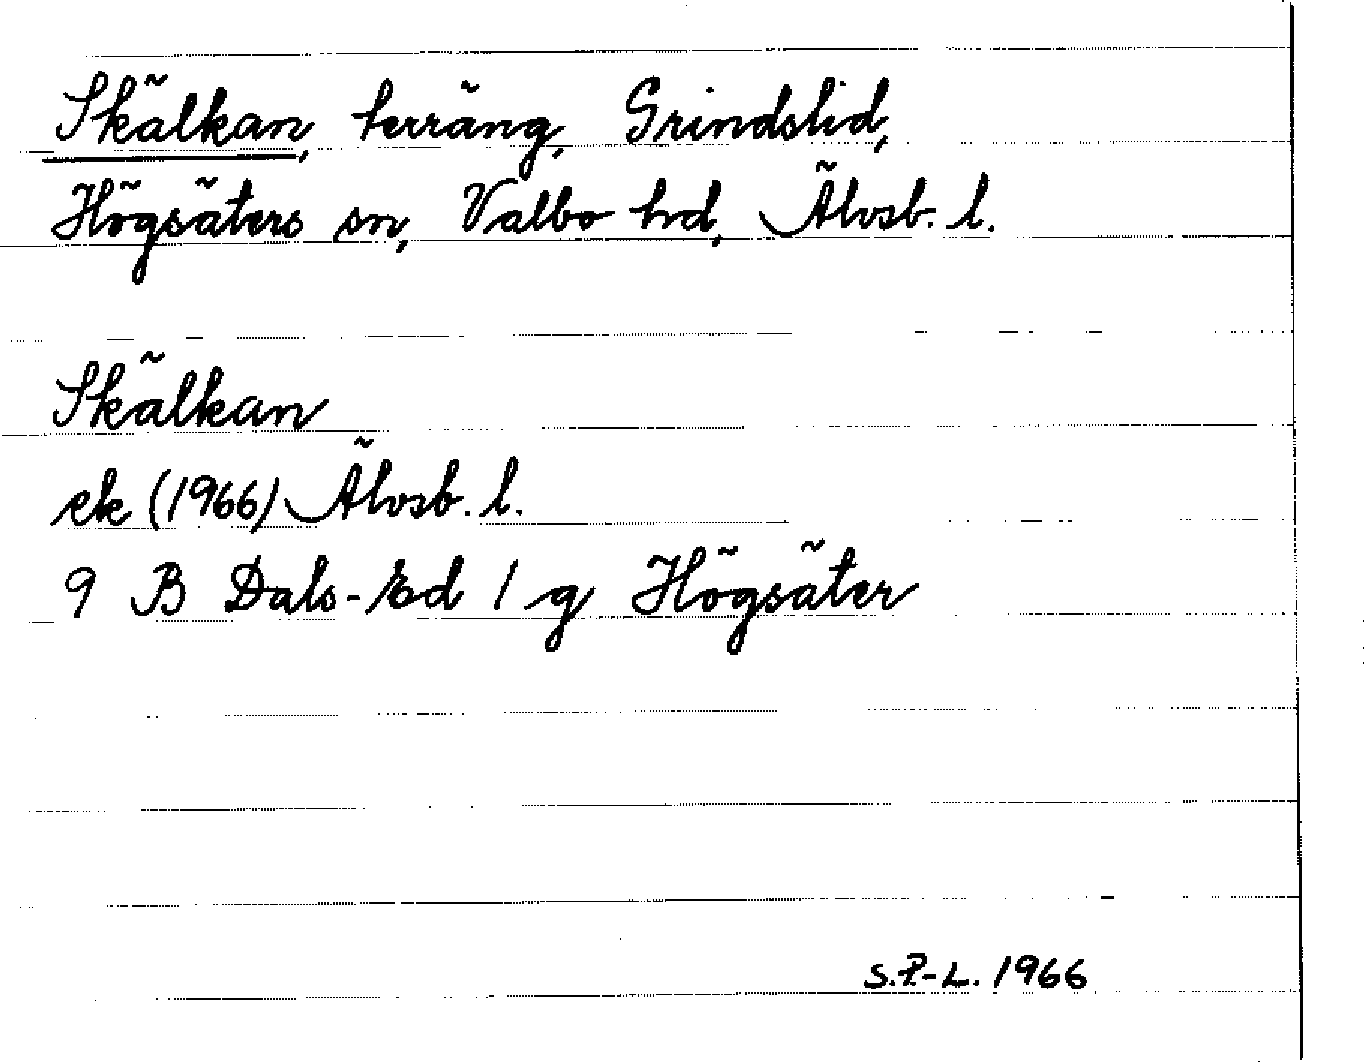 Skälkan, terräng, Grindslid,
Högsäters sn, Valbo hd, Älvsb. l.
Skälkan
ek (1966) Älvsb. l.
9 B Dals-Ed 1 g Högsäter
S.P-L. 1966